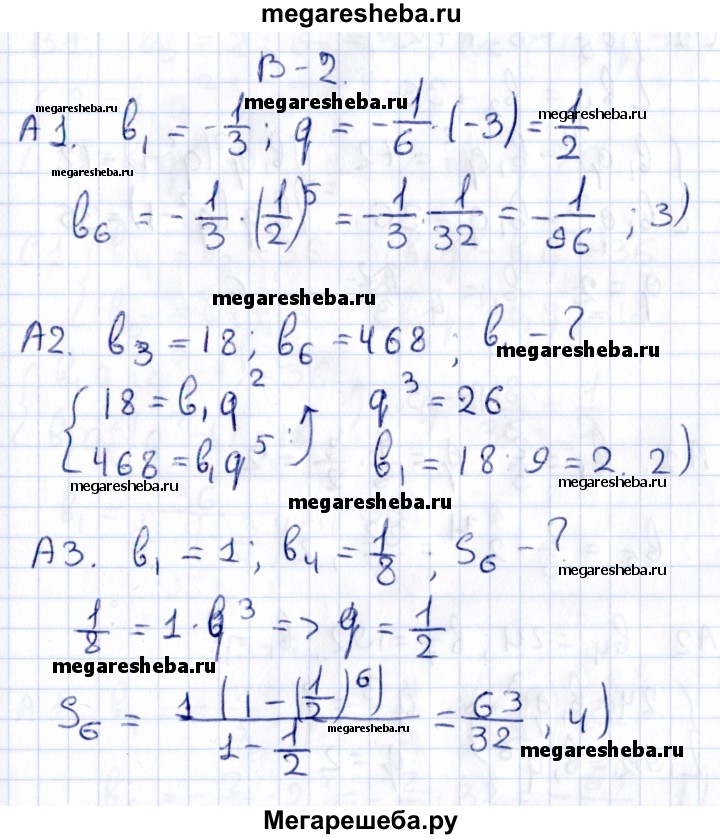 megaresheba.ru
В-2.
megaresheba.ru megaresheba.ru megaresheba.ru
А1. b₁ = -1/3; q = -1/6 · (-3) = 1/2
megaresheba.ru
b₆ = -1/3 · (1/2)⁵ = -1/3 · 1/32 = -1/96; 3)
megaresheba.ru
А2. b₃ = 18; b₆ = 468; b₁ - ?
megaresheba.ru
{ 18 = b₁q² q³ = 26
468 = b₁q⁵ :) b₁ = 18 : 9 = 2. 2)
megaresheba.ru megaresheba.ru
megaresheba.ru
А3. b₁ = 1; b₄ = 1/8; S₆ - ?
megaresheba.ru
1/8 = 1 · q³ => q = 1/2
megaresheba.ru
S₆ = 1(1 - (1/2)⁶) / (1 - 1/2) = 63/32, 4)
megaresheba.ru megaresheba.ru
Мегарешеба.ру